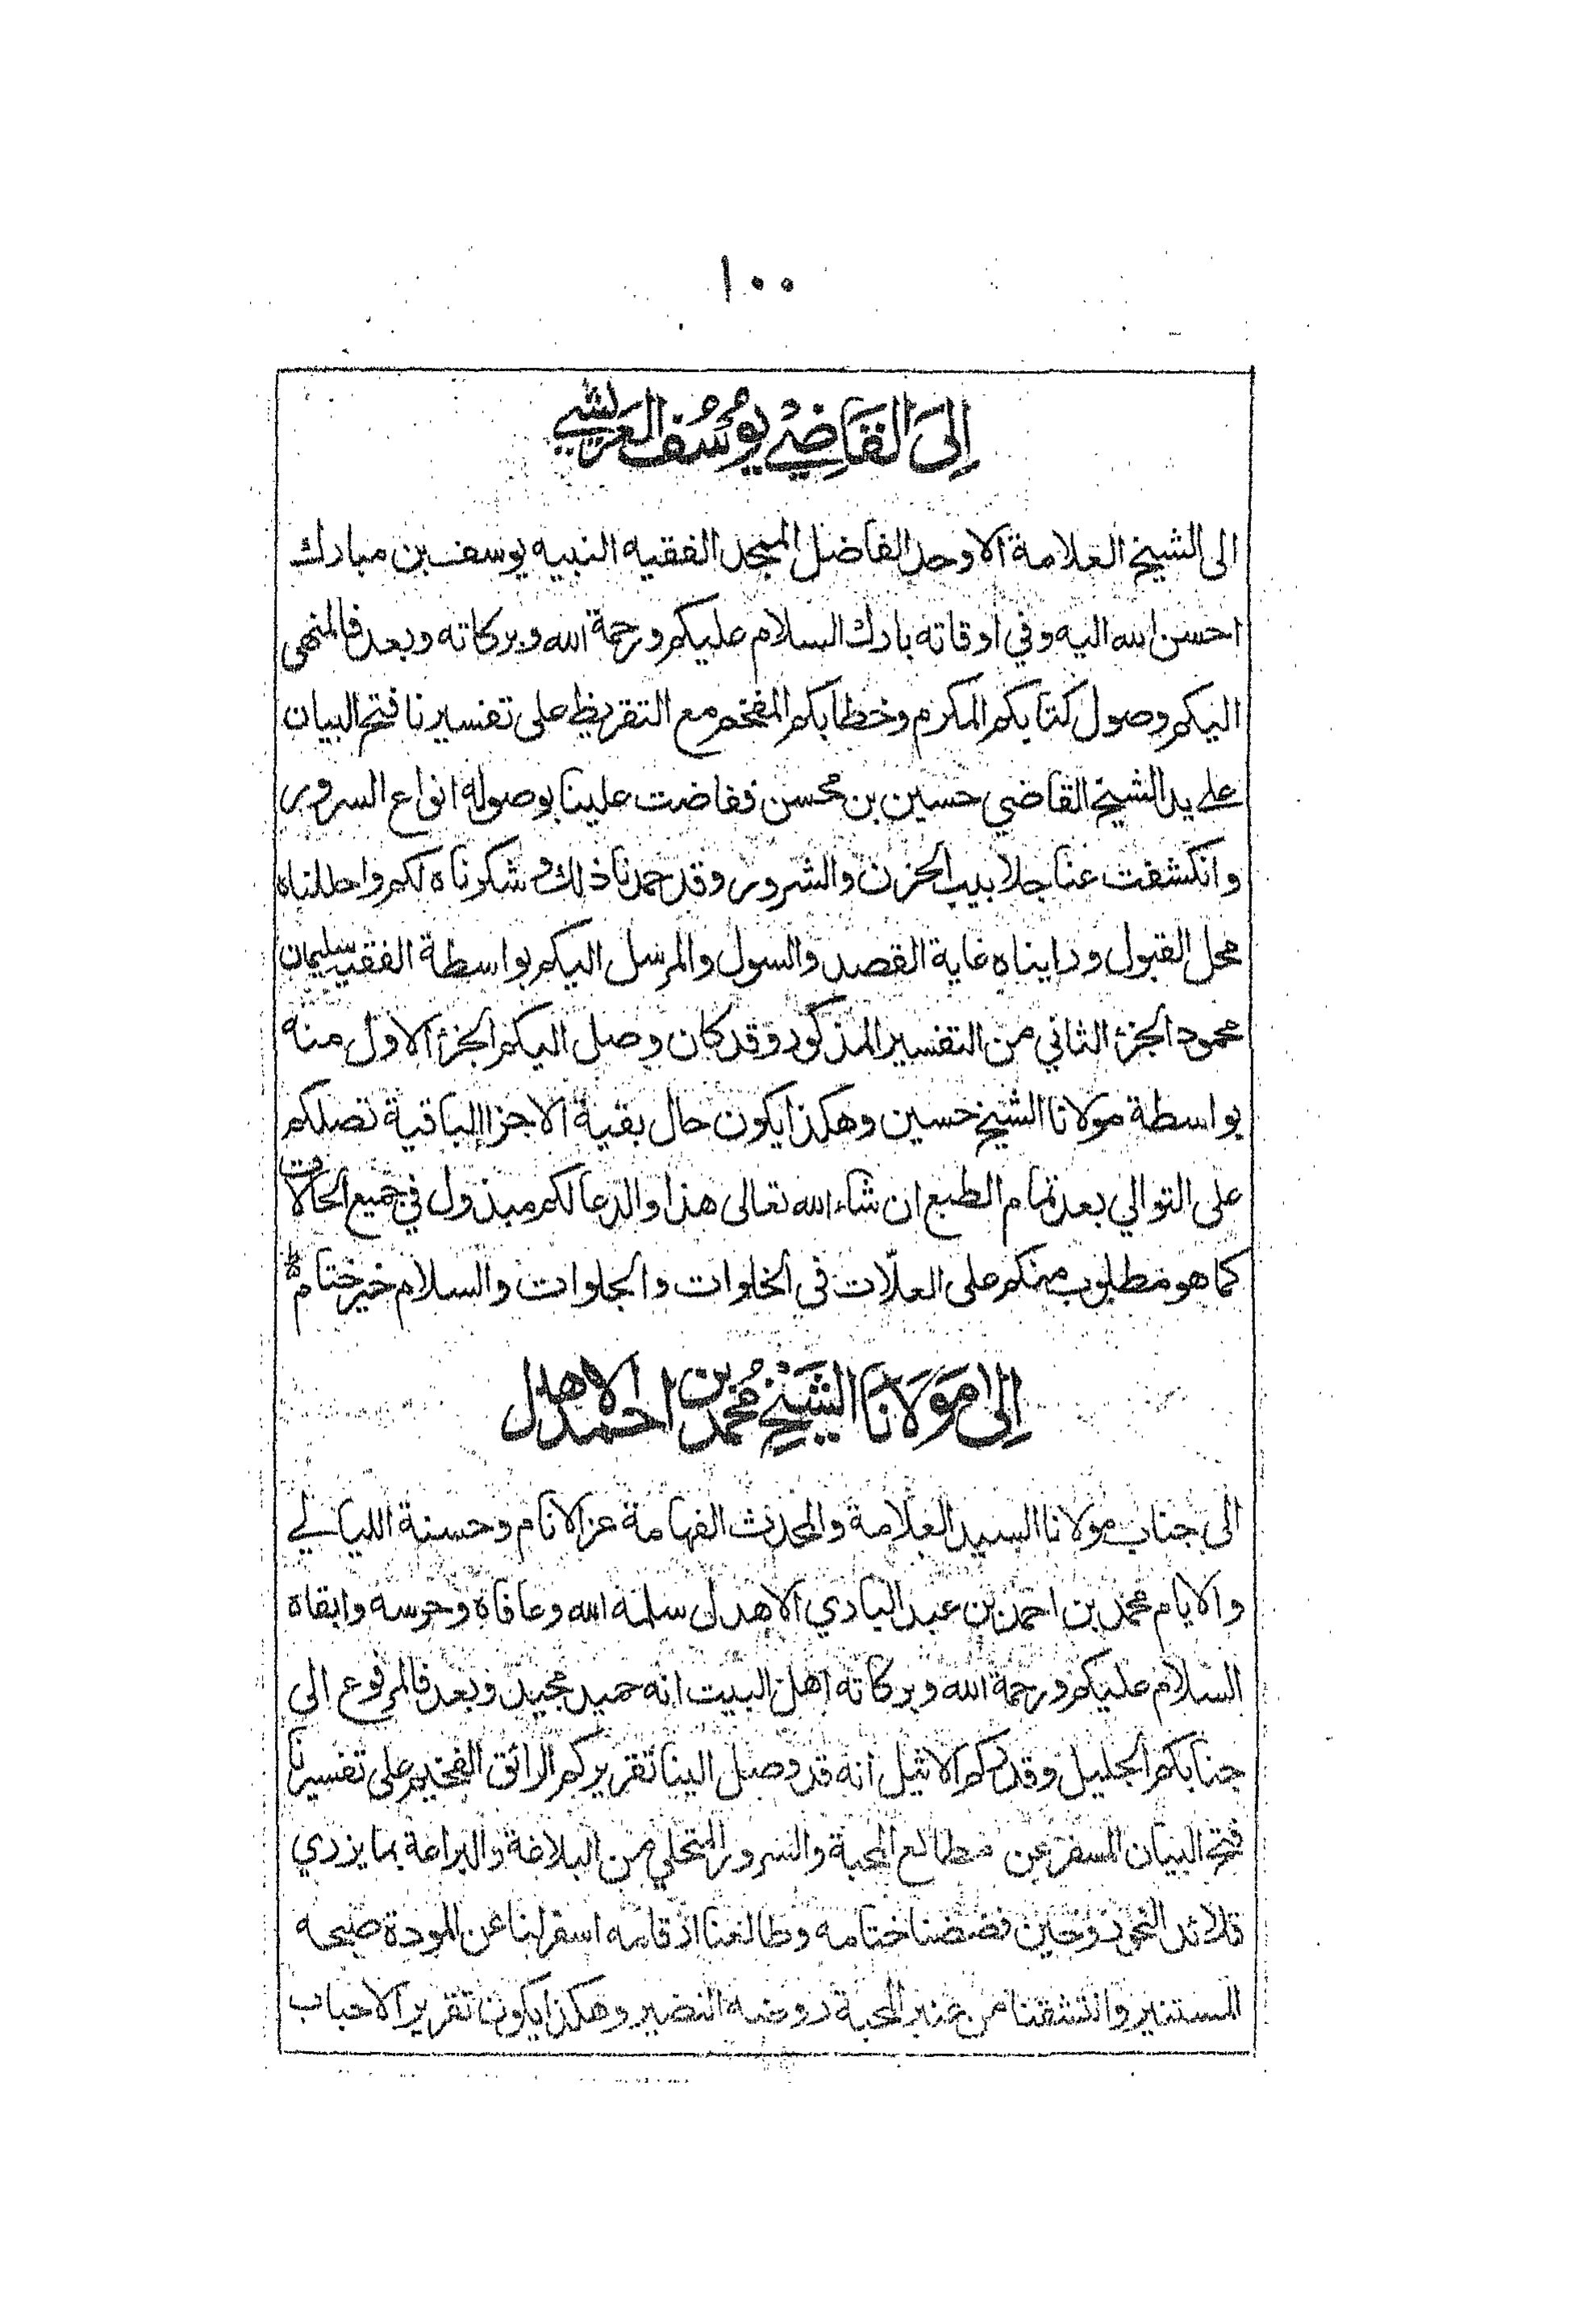 ١٠٠
اِلَى القَاضِي يُوسُف العَرِيشي
الى الشيخ العلامة الاوحد الفاضل المجد الفقيه النبيه يوسف بن مبارك
احسن الله اليه وفي اوقاته بارك السلام عليكم ورحمة الله وبركاته وبعد فالمنهى
اليكم وصول كتابكم المكرم وخطابكم المفخم مع التقريظ على تفسيرنا فتح البيان
على يد الشيخ القاضي حسين بن محسن ففاضت علينا بوصوله انواع السرور
وانكشفت عنا جلابيب الحزن والشرور وقد حمدنا ذلك و شكرناه لكم واحللناه
محل القبول ورايناه غاية القصد والسول والمرسل اليكم بواسطة الفقيه سليمان
محمود الجزء الثاني من التفسير المذكور وقد كان وصل اليكم الجزء الاول منه
بواسطة مولانا الشيخ حسين وهكذا يكون حال بقية الاجزا الباقية تصلكم
على التوالي بعد تمام الطبع ان شاء الله تعالى هذا والدعا لكم مبذول في جميع الحالات
كما هو مطلوب منكم على العلّات في الخلوات والجلوات والسلام خير ختام
اِلى مَولَانَا الشَّيْخِ مُحَمَّد بن احمد الاهدل
الى جناب مولانا السيد العلامة والمحدث الفهامة عز الانام وحسنة الليالي
والايام محمد بن احمد بن عبد الباري الاهدل سلمه الله وعافاه وحرسه وابقاه
السلام عليكم ورحمة الله وبركاته اهل البيت انه حميد مجيد وبعد فالمرفوع الى
جنابكم الجليل وقدركم الاثيل انه قد وصل الينا تقريركم الرائق الفخيم على تفسيرنا
فتح البيان المسفر عن مطالع المحبة والسرور المتحلي من البلاغة والبراعة بما يزري
قلائد النحور وحين فضضنا ختامه وطالعنا ارقامه اسفر لنا عن المودة صبحه
المستنير وانتشقنا من عنبر المحبة روضه النضير وهكذا يكون تقرير الاحباب